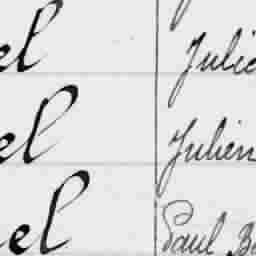 el Julie
el Julien
el Paul Be